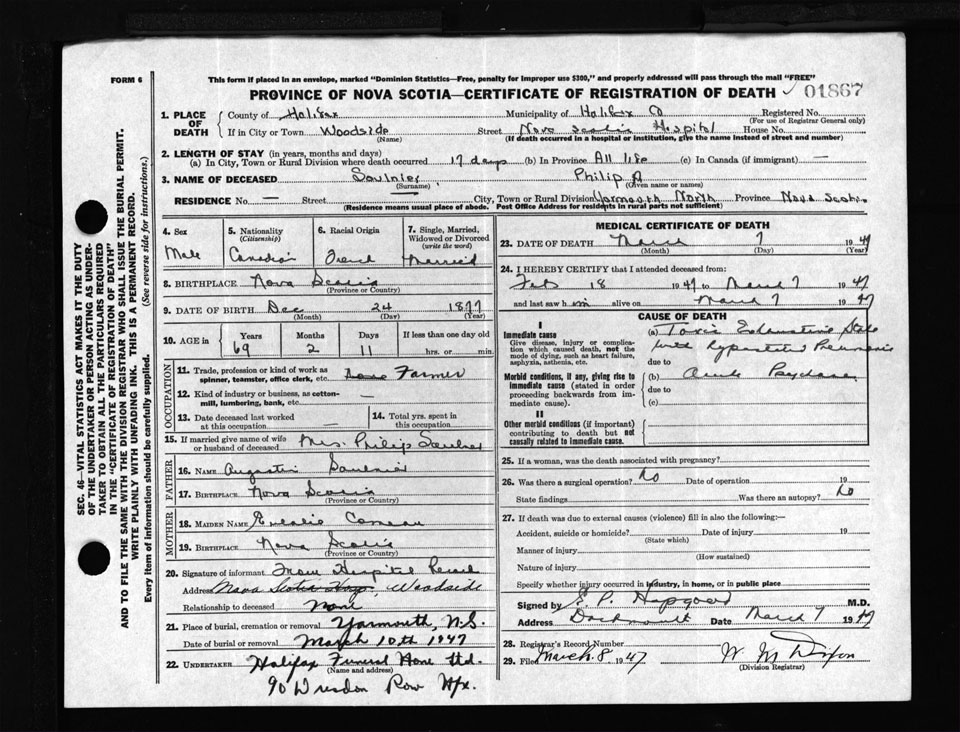 FORM 6
This form if placed in an envelope, marked "Dominion Statistics—Free, penalty for improper use $300," and properly addressed will pass through the mail "FREE"
PROVINCE OF NOVA SCOTIA—CERTIFICATE OF REGISTRATION OF DEATH
01867
SEC. 46—VITAL STATISTICS ACT MAKES IT THE DUTY
OF THE UNDERTAKER OR PERSON ACTING AS UNDER-
TAKER TO OBTAIN ALL THE PARTICULARS REQUIRED
IN THE "CERTIFICATE OF REGISTRATION OF DEATH"
AND TO FILE THE SAME WITH THE DIVISION REGISTRAR WHO SHALL ISSUE THE BURIAL PERMIT.
WRITE PLAINLY WITH UNFADING INK. THIS IS A PERMANENT RECORD.
Every item of information should be carefully supplied. (See reverse side for instructions.)
1. PLACE OF DEATH County of Halifax Municipality of Halifax Registered No.
(For use of Registrar General only)
If in City or Town Woodside Street Nova Scotia Hospital House No.
(Name) (If death occurred in a hospital or institution, give the name instead of street and number)
2. LENGTH OF STAY (in years, months and days)
(a) In City, Town or Rural Division where death occurred 17 days (b) In Province All life (c) In Canada (if immigrant) —
3. NAME OF DECEASED Saulnier, Philip
(Surname) (Given name or names)
RESIDENCE No. — Street City, Town or Rural Division Yarmouth North Province Nova Scotia
(Residence means usual place of abode. Post Office Address for residents in rural parts not sufficient)
4. Sex
Male
5. Nationality
(Citizenship)
Canadian
6. Racial Origin
French
7. Single, Married,
Widowed or Divorced
(write the word)
Married
8. BIRTHPLACE Nova Scotia
(Province or Country)
9. DATE OF BIRTH Dec 24 1877
(Month) (Day) (Year)
10. AGE in Years Months Days If less than one day old
69 2 11 hrs. or min.
OCCUPATION
11. Trade, profession or kind of work as
spinner, teamster, office clerk, etc. Farmer
12. Kind of industry or business, as cotton-
mill, lumbering, bank, etc. —
13. Date deceased last worked
at this occupation —
14. Total yrs. spent in
this occupation
15. If married give name of wife
or husband of deceased Mrs. Philip Saulnier
FATHER
16. NAME Augustin Saulnier
17. BIRTHPLACE Nova Scotia
(Province or Country)
MOTHER
18. MAIDEN NAME Eulalie Comeau
19. BIRTHPLACE Nova Scotia
(Province or Country)
20. Signature of informant From Hospital Record
Address Nova Scotia Hosp. Woodside
Relationship to deceased None
21. Place of burial, cremation or removal Yarmouth, N.S.
Date of burial or removal March 10th 1947
22. UNDERTAKER Halifax Funeral Home Ltd.
(Name and address)
90 Dresden Row Hfx.
MEDICAL CERTIFICATE OF DEATH
23. DATE OF DEATH March 7 1947
(Month) (Day) (Year)
24. I HEREBY CERTIFY that I attended deceased from:
Feb 18 1947 to March 7 1947
and last saw him alive on March 7 1947
CAUSE OF DEATH
I
Immediate cause
Give disease, injury or complica-
tion which caused death, not the
mode of dying, such as heart failure,
asphyxia, asthenia, etc.
(a) Toxic Exhaustive State
with Hypostatic Pneumonia
due to
Morbid conditions, if any, giving rise to
immediate cause (stated in order
proceeding backwards from im-
mediate cause).
(b) Acute
due to
(c)
II
Other morbid conditions (if important)
contributing to death but not
causally related to immediate cause.
25. If a woman, was the death associated with pregnancy?
26. Was there a surgical operation? No Date of operation 19
State findings Was there an autopsy? No
27. If death was due to external causes (violence) fill in also the following:—
Accident, suicide or homicide? Date of injury 19
(State which)
Manner of injury
(How sustained)
Nature of injury
Specify whether injury occurred in industry, in home, or in public place
Signed by E. P. Hapgood M.D.
Address Dartmouth Date March 7 1947
28. Registrar's Record Number
29. Filed March 8 1947 W. M. Dixon
(Division Registrar)